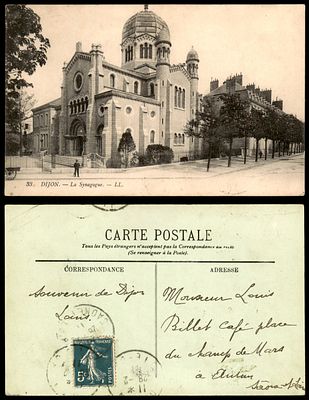 33. DIJON. — La Synagogue. — LL.
CARTE POSTALE
Tous les Pays étrangers n'acceptent pas la Correspondance au recto
(Se renseigner à la Poste).
CORRESPONDANCE
ADRESSE
Souvenir de Dijon
Louis
Monsieur Louis
Billet Café place
du champ de Mars
à Autun
Saône-et-Loire
5c